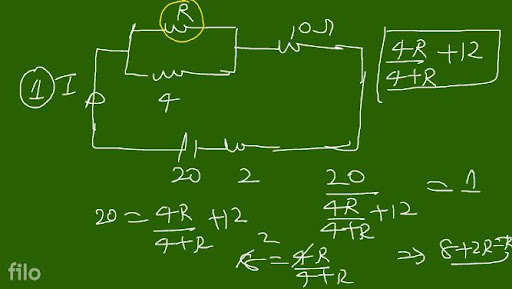 R
10Ω
4R/4+R + 12
① I
4
20 2
20/(4R/4+R + 12) = 1
20 = 4R/4+R + 12
8 2 = 4R/4+R ⇒ 8+2R=
filo